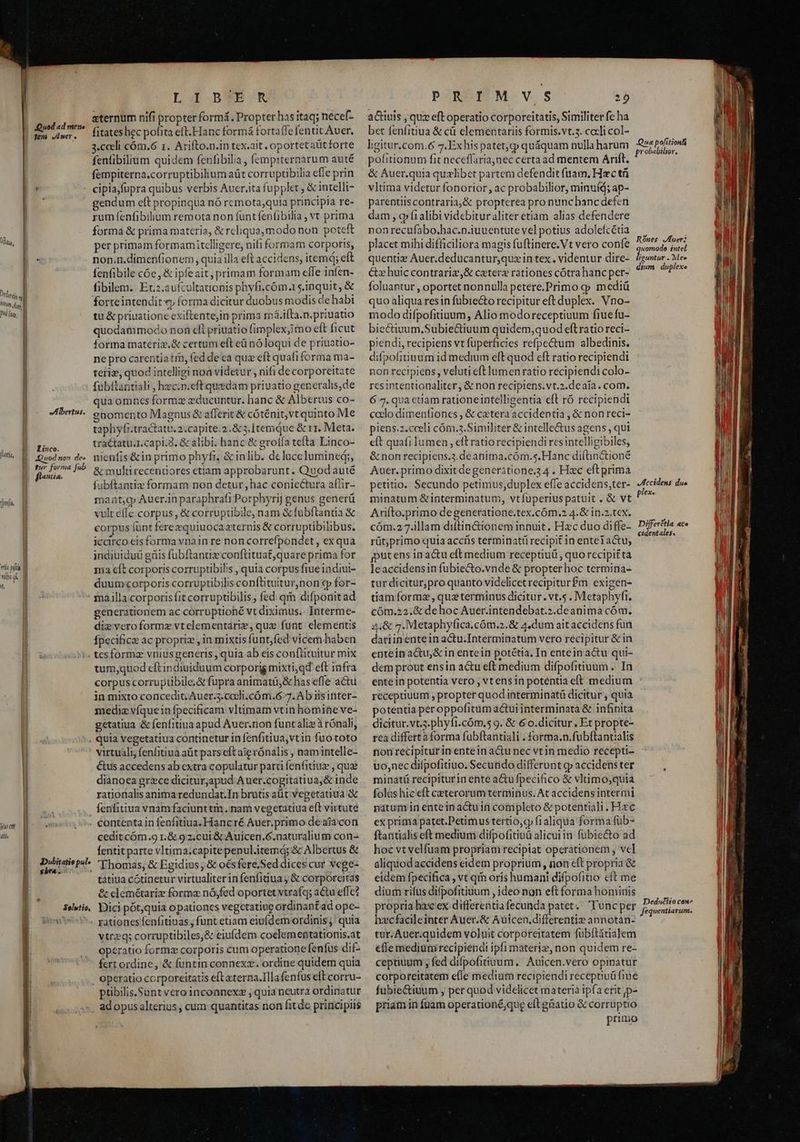 LIBER
Quod ad mentem Auer.
æternum nisi propter formã. Propter has itaq; necess-
sitates hec posita est. Hanc formã fortasse sentit Auer.
3.cœli cõm.6 1. Aristo.n.in tex.ait, oportet aũt forte
sensibilium quidem sensibilia, sempiternarum autẽ
sempiterna.corruptibilium aũt corruptibilia esse prin
cipia, supra quibus verbis Auer.ita supplet, & intelli-
gendum est propinqua nõ remota, quia principia re-
rum sensibilium remota non sunt sensibilia, vt prima
forma & prima materia, & reliqua, modo non potest
per primam formam itelligere, nisi formam corporis,
non.n.dimensionem, quia illa est accidens, itemq; est
sensibile cõe, & ipse ait, primam formam esse insen-
sibilem. Et.2.auscultationis physi.cõm.15.inquit, &
forte intendit q; forma dicitur duobus modis de habi
tu & priuatione existente, in prima mã.ista.n.priuatio
quodammodo non est priuatio simplex, imo est sicut
forma materiæ.& certum est eũ nõ loqui de priuatio-
ne pro carentia tñ, sed de ea quæ est quasi forma ma-
teriæ, quod intelligi non videtur, nisi de corporeitate
substantiali, hæc.n.est quædam priuatio generalis, de
qua omnes formæ educuntur. hanc & Albertus co-
Albertus.
gnomento Magnus & asserit & cõtẽnit, vt quinto Me
taphysi.tractatu.2.capite.2.& 3. Itemque & 11. Meta.
tractatu.1.capi.8. & alibi. hanc & grossa testa Linco-
Linco.
niensis & in primo physi, & in lib. de luce lumineq;,
Quod non de- tur forma sub stantia.
& multi recentiores etiam approbarunt. Quod autẽ
substantiæ formam non detur, hac coniectura affir-
mant, q; Auer.in paraphrasi Porphyrij genus generũ
vult esse corpus, & corruptibile, nam & substãtia &
corpus sunt fere æquiuoca æternis & corruptibilibus.
iccirco eis forma vna in re non correspondet, ex qua
indiuiduũ gñis substantiæ constituat, quare prima for
ma est corporis corruptibilis, quia corpus siue indiui-
duum corporis corruptibilis constituitur, non q; for-
ma illa corporis sit corruptibilis, sed qm̃ disponit ad
generationem ac corruptionẽ vt diximus. Interme-
diæ vero formæ vt elementariæ, quæ sunt elementis
specificæ ac propriæ, in mixtis sunt, sed vicem haben
tes formæ vnius generis, quia ab eis constituitur mix
tum, quod est indiuiduum corporis mixti, qđ est infra
corpus corruptibile.& supra animatũ, & has esse actu
in mixto concedit. Auer.3.cœli.cõm.67. Ab iis inter-
mediæ vsque in specificam vltimam vt in homine ve-
getatiua & sensitiua apud Auer.non sunt aliæ à rõnali,
quia vegetatiua continetur in sensitiua, vt in suo toto
virtuali, sensitiua aũt pars est aiæ rõnalis, nam intelle-
ctus accedens ab extra copulatur parti sensitiuæ, quæ
dianoea græce dicitur, apud Auer.cogitatiua, & inde
rationalis anima redundat. In brutis aũt vegetatiua &
sensitiua vnam faciunt tm̃. nam vegetatiua est virtute
contenta in sensitiua. Hanc rẽ Auer.primo de aïa con
cedit cõm.91.& 92. cui & Auicen.6.naturalium con-
sentit parte vltima.capite penul.itemq; & Albertus &
Dubitatio pul- chra.
Thomas, & Egidius, & oẽs fere. Sed dices cur vege-
tatiua cõtinetur virtualiter in sensitiua, & corporeitas
& elemẽtariæ formæ nõ, sed oportet vtrasq; actu esse?
Solutio.
Dici põt, quia opationes vegetatiuę ordinant ad ope-
rationes sensitiuas, sunt etiam eiusdem ordinis, quia
vtræq; corruptibiles, & eiusdem coelementationis. at
operatio formæ corporis cum operatione sensus dif-
fert ordine, & sunt inconnexæ. ordine quidem quia
operatio corporeitatis est æterna. Illa sensus est corru-
ptibilis. Sunt vero inconnexæ, quia neutra ordinatur
ad opus alterius, cum quantitas non sit de principiis
PRIMVS 29
actiuis, quæ est operatio corporeitatis, Similiter se ha
bet sensitiua & cũ elementariis formis. vt.3. cœli col-
ligitur.com.67. Ex his patet, q; quãquam nulla harum
Quæ positionũ probabilior.
positionum sit necessaria, nec certa ad mentem Arist.
& Auer.quia quælibet partem defendit suam. Hæc tñ
vltima videtur sonorior, ac probabilior, minusq; ap-
parentiis contraria, & propterea pro nunc hanc defen
dam, q; si alibi videbitur aliter etiam alias defendere
non recusabo. hac.n.iuuentute vel potius adolescẽtia
placet mihi difficiliora magis sustinere. Vt vero conse
Rões Auer; quomodo intel liguntur. Me- dium duplex
quentiæ Auer.deducantur, quæ in tex. videntur dire-
ctæ huic contrariæ, & cæteræ rationes cõtra hanc per-
soluantur, oportet nonnulla petere. Primo q; mediũ
quo aliqua res in subiecto recipitur est duplex. Vno-
modo dispositiuum, Alio modo receptiuum siue su-
biectiuum. Subiectiuum quidem, quod est ratio reci-
piendi, recipiens vt superficies respectum albedinis.
dispositiuum id medium est quod est ratio recipiendi
non recipiens, veluti est lumen ratio recipiendi colo-
res intentionaliter, & non recipiens. vt.2.de aïa. com.
67. qua etiam ratione intelligentia est rõ recipiendi
cœlo dimensiones, & cætera accidentia, & non reci-
piens.2.cœli cõm.3. Similiter & intellectus agens, qui
est quasi lumen, est ratio recipiendi res intelligibiles,
& non recipiens.3.de anima.cõm.5. Hanc distinctionẽ
Auer. primo dixit de generatione.34. Hæc est prima
petitio. Secundo petimus, duplex esse accidens, ter-
Accidens du- plex.
minatum & interminatum, vt superius patuit. & vt
Aristo.primo de generatione.tex.cõm.24.& in.2.tex.
cõm.27. illam distinctionem innuit. Hæc duo diffe-
Differẽtia acc cidentales.
rũt, primo quia accñs terminatũ recipit in ente ĩ actu,
put ens in actu est medium receptiuũ, quo recipit ta
le accidens in subiecto. vnde & propter hoc termina-
tur dicitur, pro quanto videlicet recipitur fm exigen-
tiam formæ, quæ terminus dicitur. vt.5. Metaphysi.
cõm.22.& de hoc Auer.intendebat.2.de anima cõm.
4.& 7. Metaphysica.cõm.2.& 4. dum ait accidens sun
dari in ente in actu. Interminatum vero recipitur & in
ente in actu, & in ente in potẽtia. In ente in actu qui-
dem prout ens in actu est medium dispositiuum. In
ente in potentia vero, vt ens in potentia est medium
receptiuum, propter quod interminatũ dicitur, quia
potentia per oppositum actui interminata & infinita
dicitur. vt.3.physi.cõm.59. & 60. dicitur. Et propte-
rea differt à forma substantiali. forma.n.substantialis
non recipitur in ente in actu nec vt in medio recepti-
uo, nec dispositiuo. Secundo differunt q; accidens ter
minatũ recipitur in ente actu specifico & vltimo, quia
solus hic est cæterorum terminus. At accidens intermi
natum in ente in actu incompleto & potentiali. Hæc
ex prima patet. Petimus tertio, q; si aliqua forma sub-
stantialis est medium dispositiuũ alicui in subiecto ad
hoc vt vel suam propriam recipiat operationem, vel
aliquod accidens eidem proprium, non est propria &
eidem specifica, vt qm̃ oris humani dispositio est me
dium risus dispositiuum, ideo non est forma hominis
propria hæc ex differentia secunda patet. Tunc per
Deductio con- sequentiarum.
hæc facile inter Auer.& Auicen.differentiæ annotan-
tur. Auer.quidem voluit corporeitatem substãtialem
esse medium recipiendi ipsi materiæ, non quidem re-
ceptiuum, sed dispositiuum. Auicen.vero opinatur
corporeitatem esse medium recipiendi receptiuũ siue
subiectiuum, per quod videlicet materia ipsa erit p-
priam in suam operationẽ, quę est gñatio & corruptio
primo